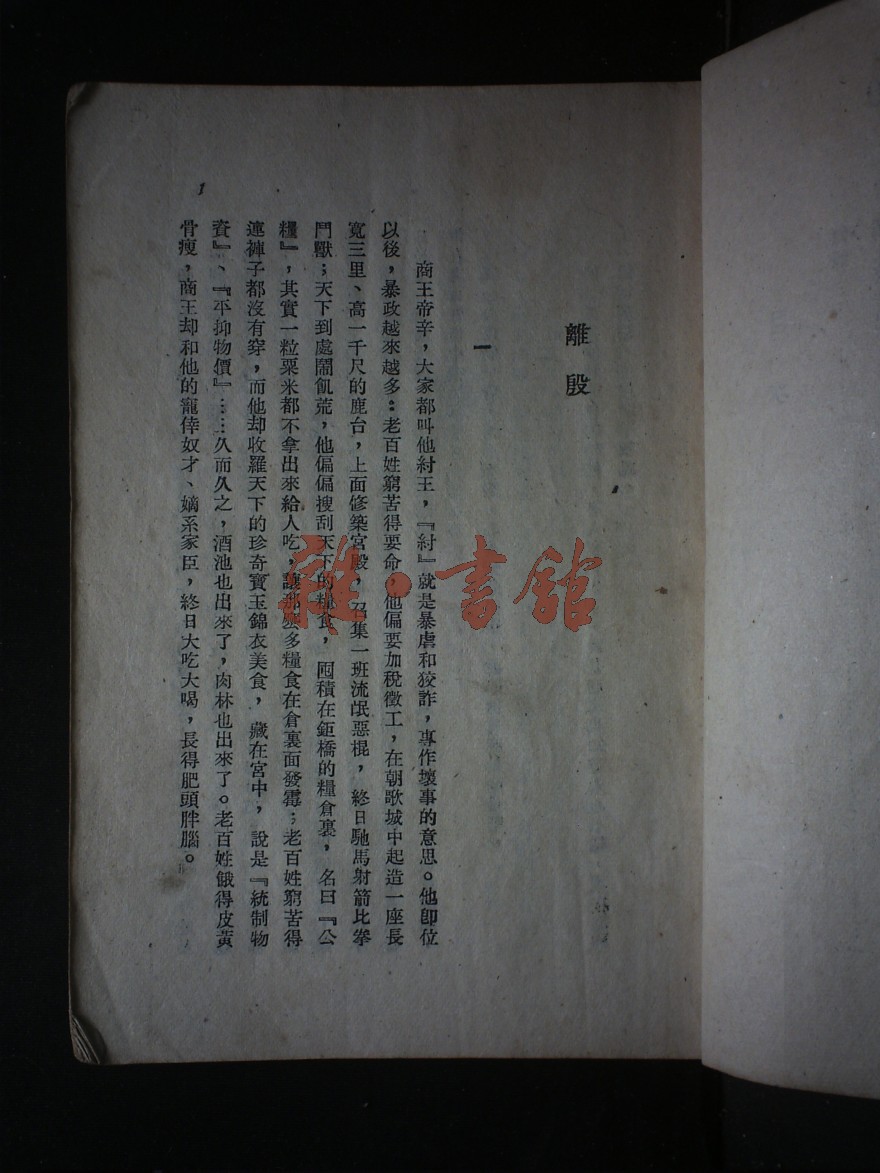 離殷
一
商王帝辛，大家都叫他紂王，『紂』就是暴虐和狡詐，專作壞事的意思。他卽位
以後，暴政越來越多：老百姓窮苦得要命，他偏要加稅徵工，在朝歌城中起造一座長
寬三里、高一千尺的鹿台，上面修築宮殿，召集一班流氓惡棍，終日馳馬射箭比拳
鬥獸；天下到處鬧飢荒，他偏偏搜刮天下的糧食，囤積在鉅橋的糧倉裏，名曰『公
糧』，其實一粒粟米都不拿出來給人吃，讓那麼多糧食在倉裏面發霉；老百姓窮苦得
連褲子都沒有穿，而他却收羅天下的珍奇寶玉錦衣美食，藏在宮中，說是『統制物
資』、『平抑物價』……久而久之，酒池也出來了，肉林也出來了。老百姓餓得皮黃
骨瘦，商王却和他的寵倖奴才、嫡系家臣，終日大吃大喝，長得肥頭胖腦。
1
雜·書館